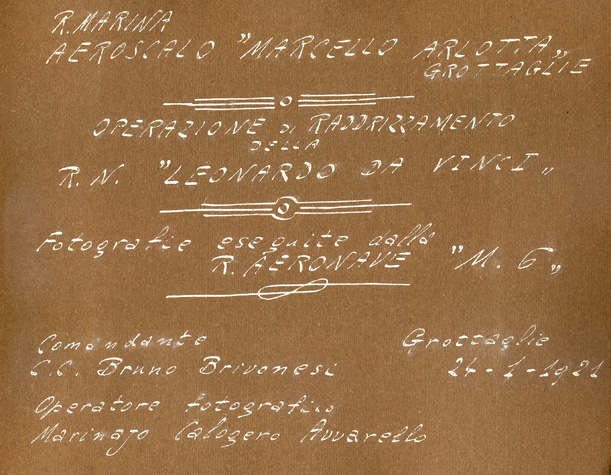 R. MARINA
AEROSCALO "MARCELLO ARLOTTA„
GROTTAGLIE
OPERAZIONE DI RADDRIZZAMENTO
DELLA
R. N. "LEONARDO DA VINCI„
Fotografie eseguite dalla
R. AERONAVE "M. 6„
Comandante
C.C. Bruno Brivonesi
Grottaglie
24-1-1921
Operatore fotografico
Marinajo Calogero Avvarello